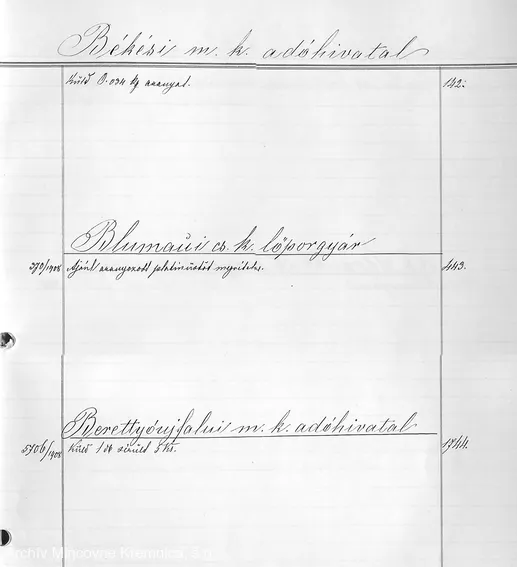 Békési m. k. adóhivatal
Küld 0.034 kg aranyat. 142.
Blumaui cs. k. lőporgyár
570/1908 Ajánl aranyozott platinüstöt megvételre. 443.
Berettyóujfalui m. k. adóhivatal
5706/1908 Küld 1 db sérült 5 Ks. 1744.
Archív Mincovne Kremnica, š.p.